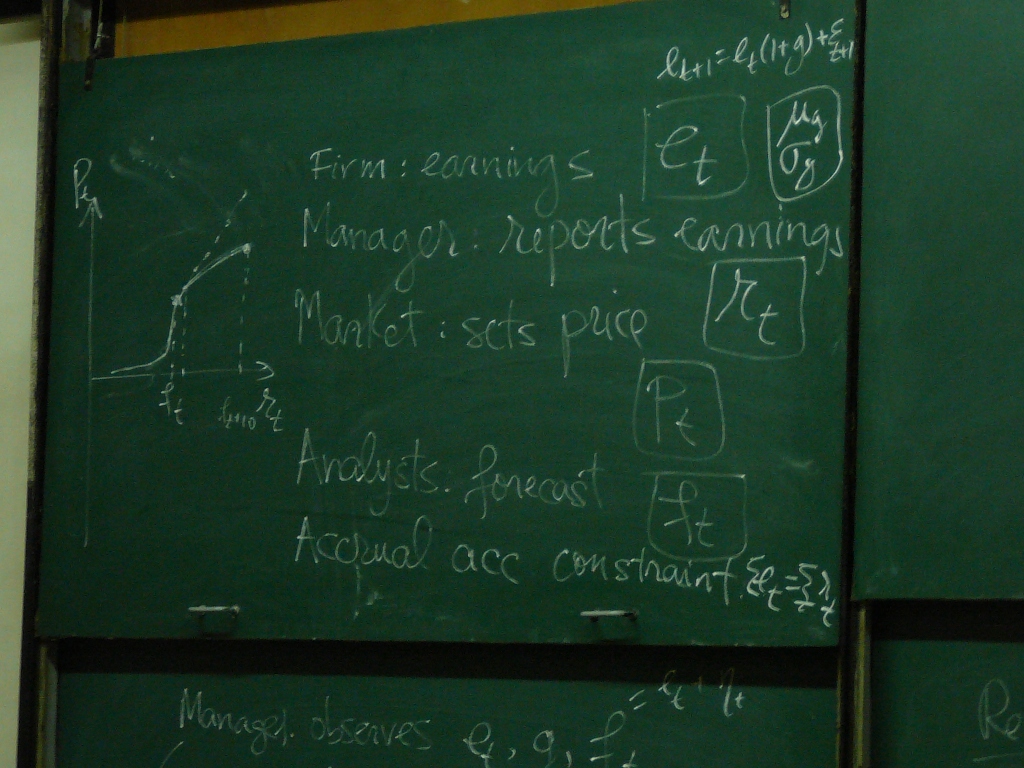 e_{t+1} = e_t(1+g) + ε_{t+1}
Firm: earnings e_t μ_g σ_g
Manager: reports earnings r_t
Market: sets price P_t
Analysts. forecast f_t
Accrual acc constraint. Σe_t = Σ_t r_t
P_t
f_t
r_t
Manager. observes e_t, g, f_t = e_t + η_t
Re